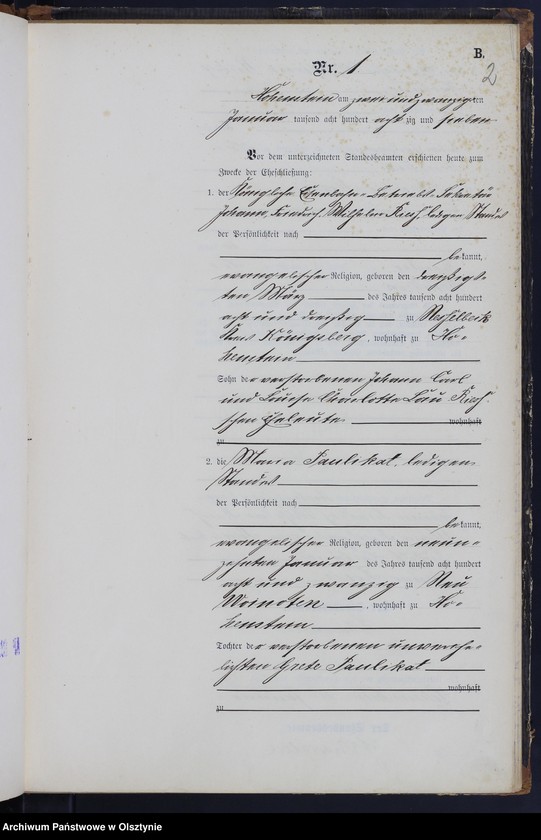 B.
2
Nr. 1
Hohenstein am zwei und zwanzigsten
Januar tausend acht hundert acht zig und sieben
Vor dem unterzeichneten Standesbeamten erschienen heute zum
Zwecke der Eheschließung:
1. der Königliche Eisenbahn-Sekretär
Johann, Friedrich, Wilhelm ledigen Standes
der Persönlichkeit nach
bekannt,
evangelischer Religion, geboren den dreißigs-
ten März des Jahres tausend acht hundert
acht und dreißig zu Nesselbeck
Kreis Königsberg, wohnhaft zu Ho-
henstein
Sohn der verstorbenen Johann Carl
und Louise Charlotte
schen Eheleute wohnhaft
zu
2. die Maria Paulikat, ledigen
Standes
der Persönlichkeit nach
bekannt,
evangelischer Religion, geboren den neun-
zehnten Januar des Jahres tausend acht hundert
acht und zwanzig zu Neu
, wohnhaft zu Ho-
henstein
Tochter der verstorbenen unverehe-
lichten Grete Paulikat
wohnhaft
zu
Archiwum Państwowe w Olsztynie